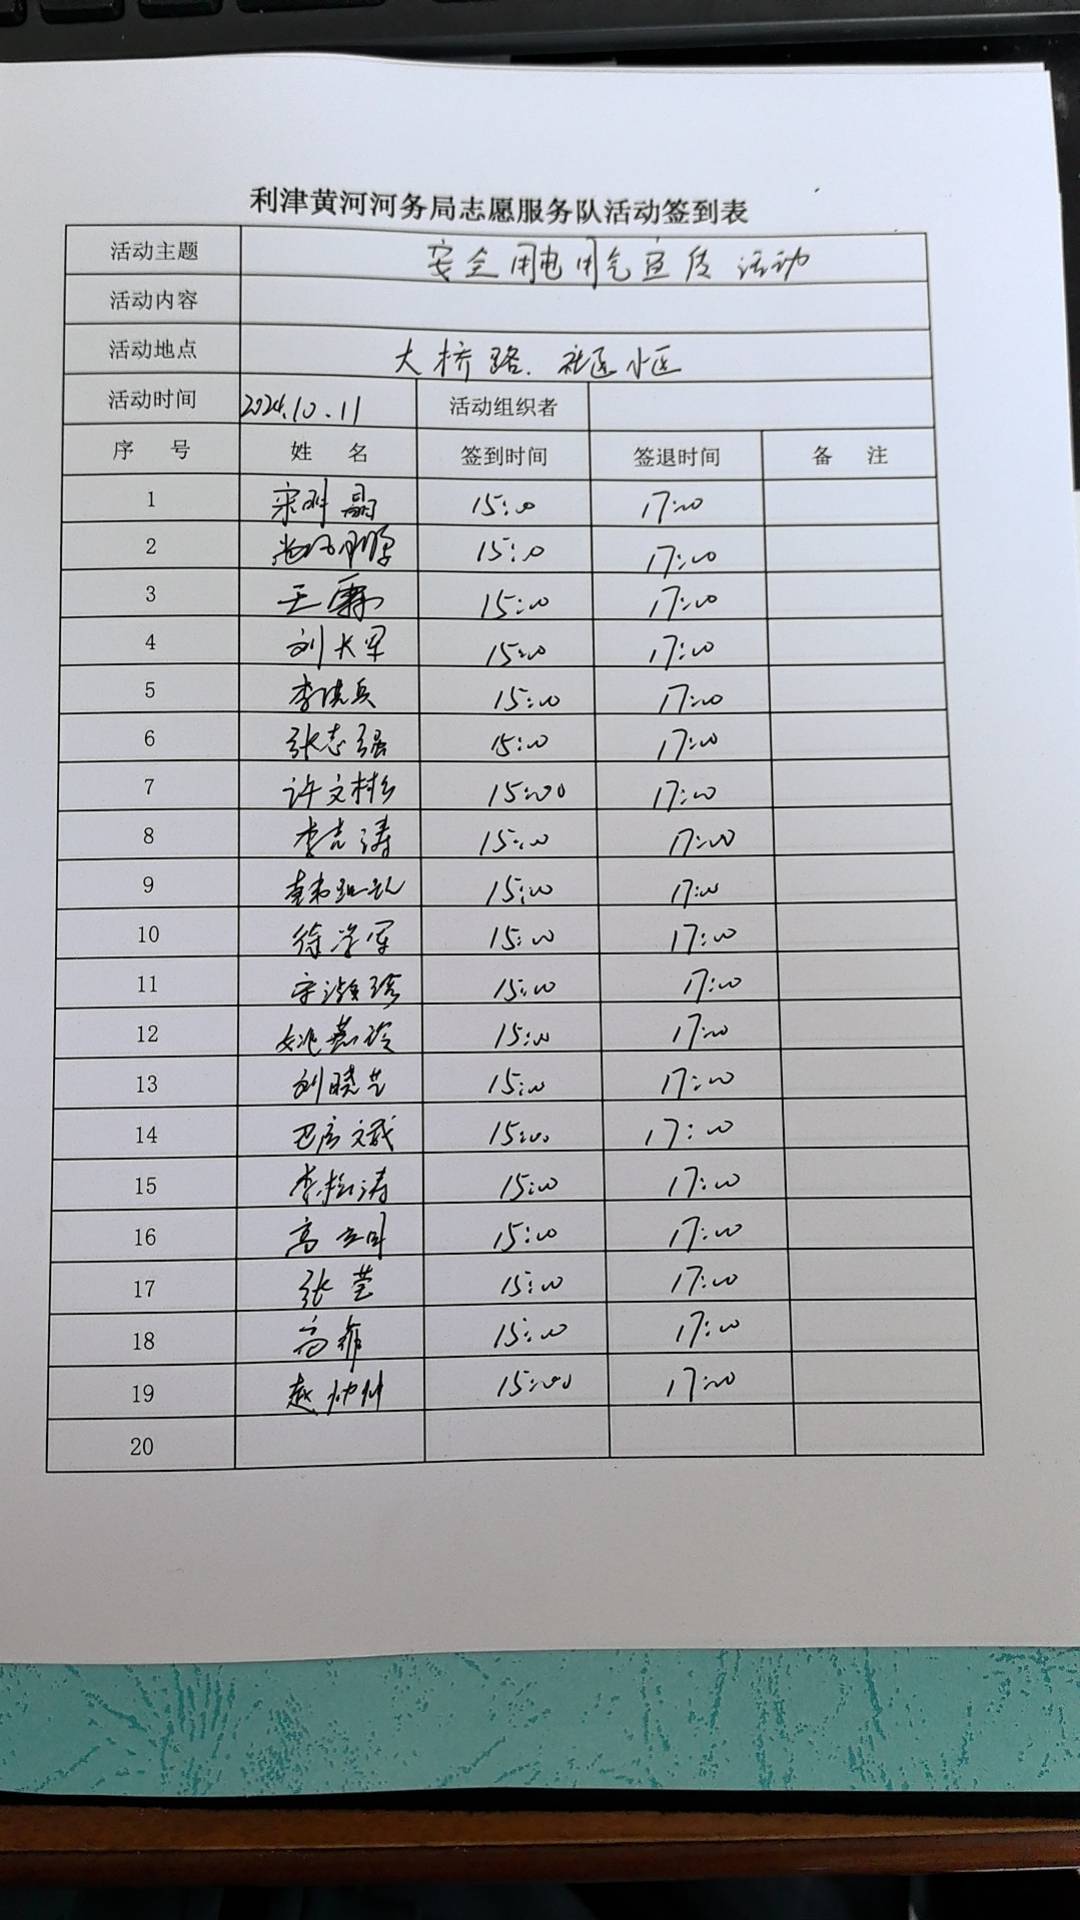 利津黄河河务局志愿服务队活动签到表
活动主题 安全用电用气宣传活动
活动内容
活动地点 大桥路、社区小区
活动时间 2024.10.11 活动组织者
序 号 姓 名 签到时间 签退时间 备 注
1 宋明晶 15:00 17:00
2 15:00 17:00
3 王霸 15:00 17:00
4 刘长军 15:00 17:00
5 李洪兵 15:00 17:00
6 张志强 15:00 17:00
7 许文彬 15:00 17:00
8 李志涛 15:00 17:00
9 15:00 17:00
10 徐学军 15:00 17:00
11 15:00 17:00
12 姚燕玲 15:00 17:00
13 刘晓芝 15:00 17:00
14 15:00 17:00
15 李松涛 15:00 17:00
16 高立国 15:00 17:00
17 张莹 15:00 17:00
18 高菲 15:00 17:00
19 赵帅帅 15:00 17:00
20